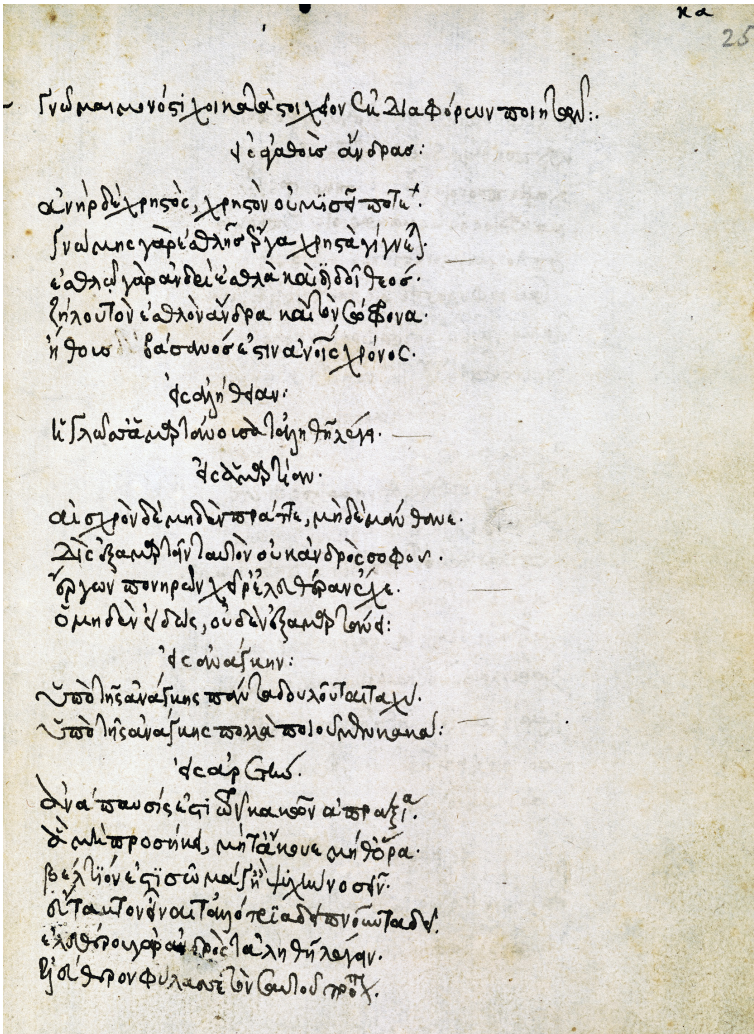 κα
25
Γνῶμαι μονόστιχοι κατὰ στοιχεῖον ἐκ διαφόρων ποιητῶν:.
εἰς ἀγαθοὺς ἄνδρας:
ἀνὴρ δὲ χρηστὸς, χρηστὸν οὐ μισεῖ ποτέ.
γνώμης γὰρ ἐσθλῆς ἔργα χρηστὰ γίγνεται.
ἐσθλῷ γὰρ ἀνδρὶ ἐσθλὰ καὶ διδοῖ θεός.
ζήλου τὸν ἐσθλὸν ἄνδρα καὶ τὸν σώφρονα.
ἤθους βάσανος ἐστιν ἀνοις χρόνος.
εἰς ἀλήθειαν:
γλῶσσα ἁμαρτάνουσα τἀληθῆ λέγει.
εἰς ἁμαρτίαν.
αἰσχρὸν δὲ μηδὲν πρᾶττε, μηδὲ μάνθανε.
Δὶς ἐξαμαρτεῖν ταυτὸν οὐκ ἀνδρὸς σοφοῦ.
ἔργων πονηρῶν χεῖρ' ἐλευθέραν ἔχε.
ὁ μηδὲν εἰδὼς, οὐδὲν ἐξαμαρτάνει:
εἰς ἀνάγκην:
ὑπὸ τῆς ἀνάγκης πάντα δουλοῦται ταχύ.
ὑπὸ τῆς ἀνάγκης πολλὰ ποιοῦμεν κακά:
εἰς ἀρετήν.
ἀνάπαυσίς ἐστι τῶν κακῶν ἀπραξία.
ἃ μὴ προσήκει, μήτ' ἄκουε μήθ' ὅρα.
βέλτιόν ἐστι σῶμά γ' ἢ ψυχὴν νοσεῖν.
εἶναι τἀλλότρια δειπνοῦντα δεῖ.
ἐλευθέρου γὰρ ἀνδρὸς τἀληθῆ λέγειν.
ἐλεύθερον φύλαττε τὸν σαυτοῦ τρόπον.